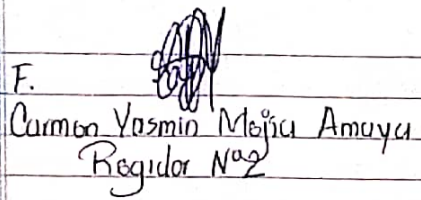 F.
Carmen Yasmin Mejia Amaya
Regidor Nº2